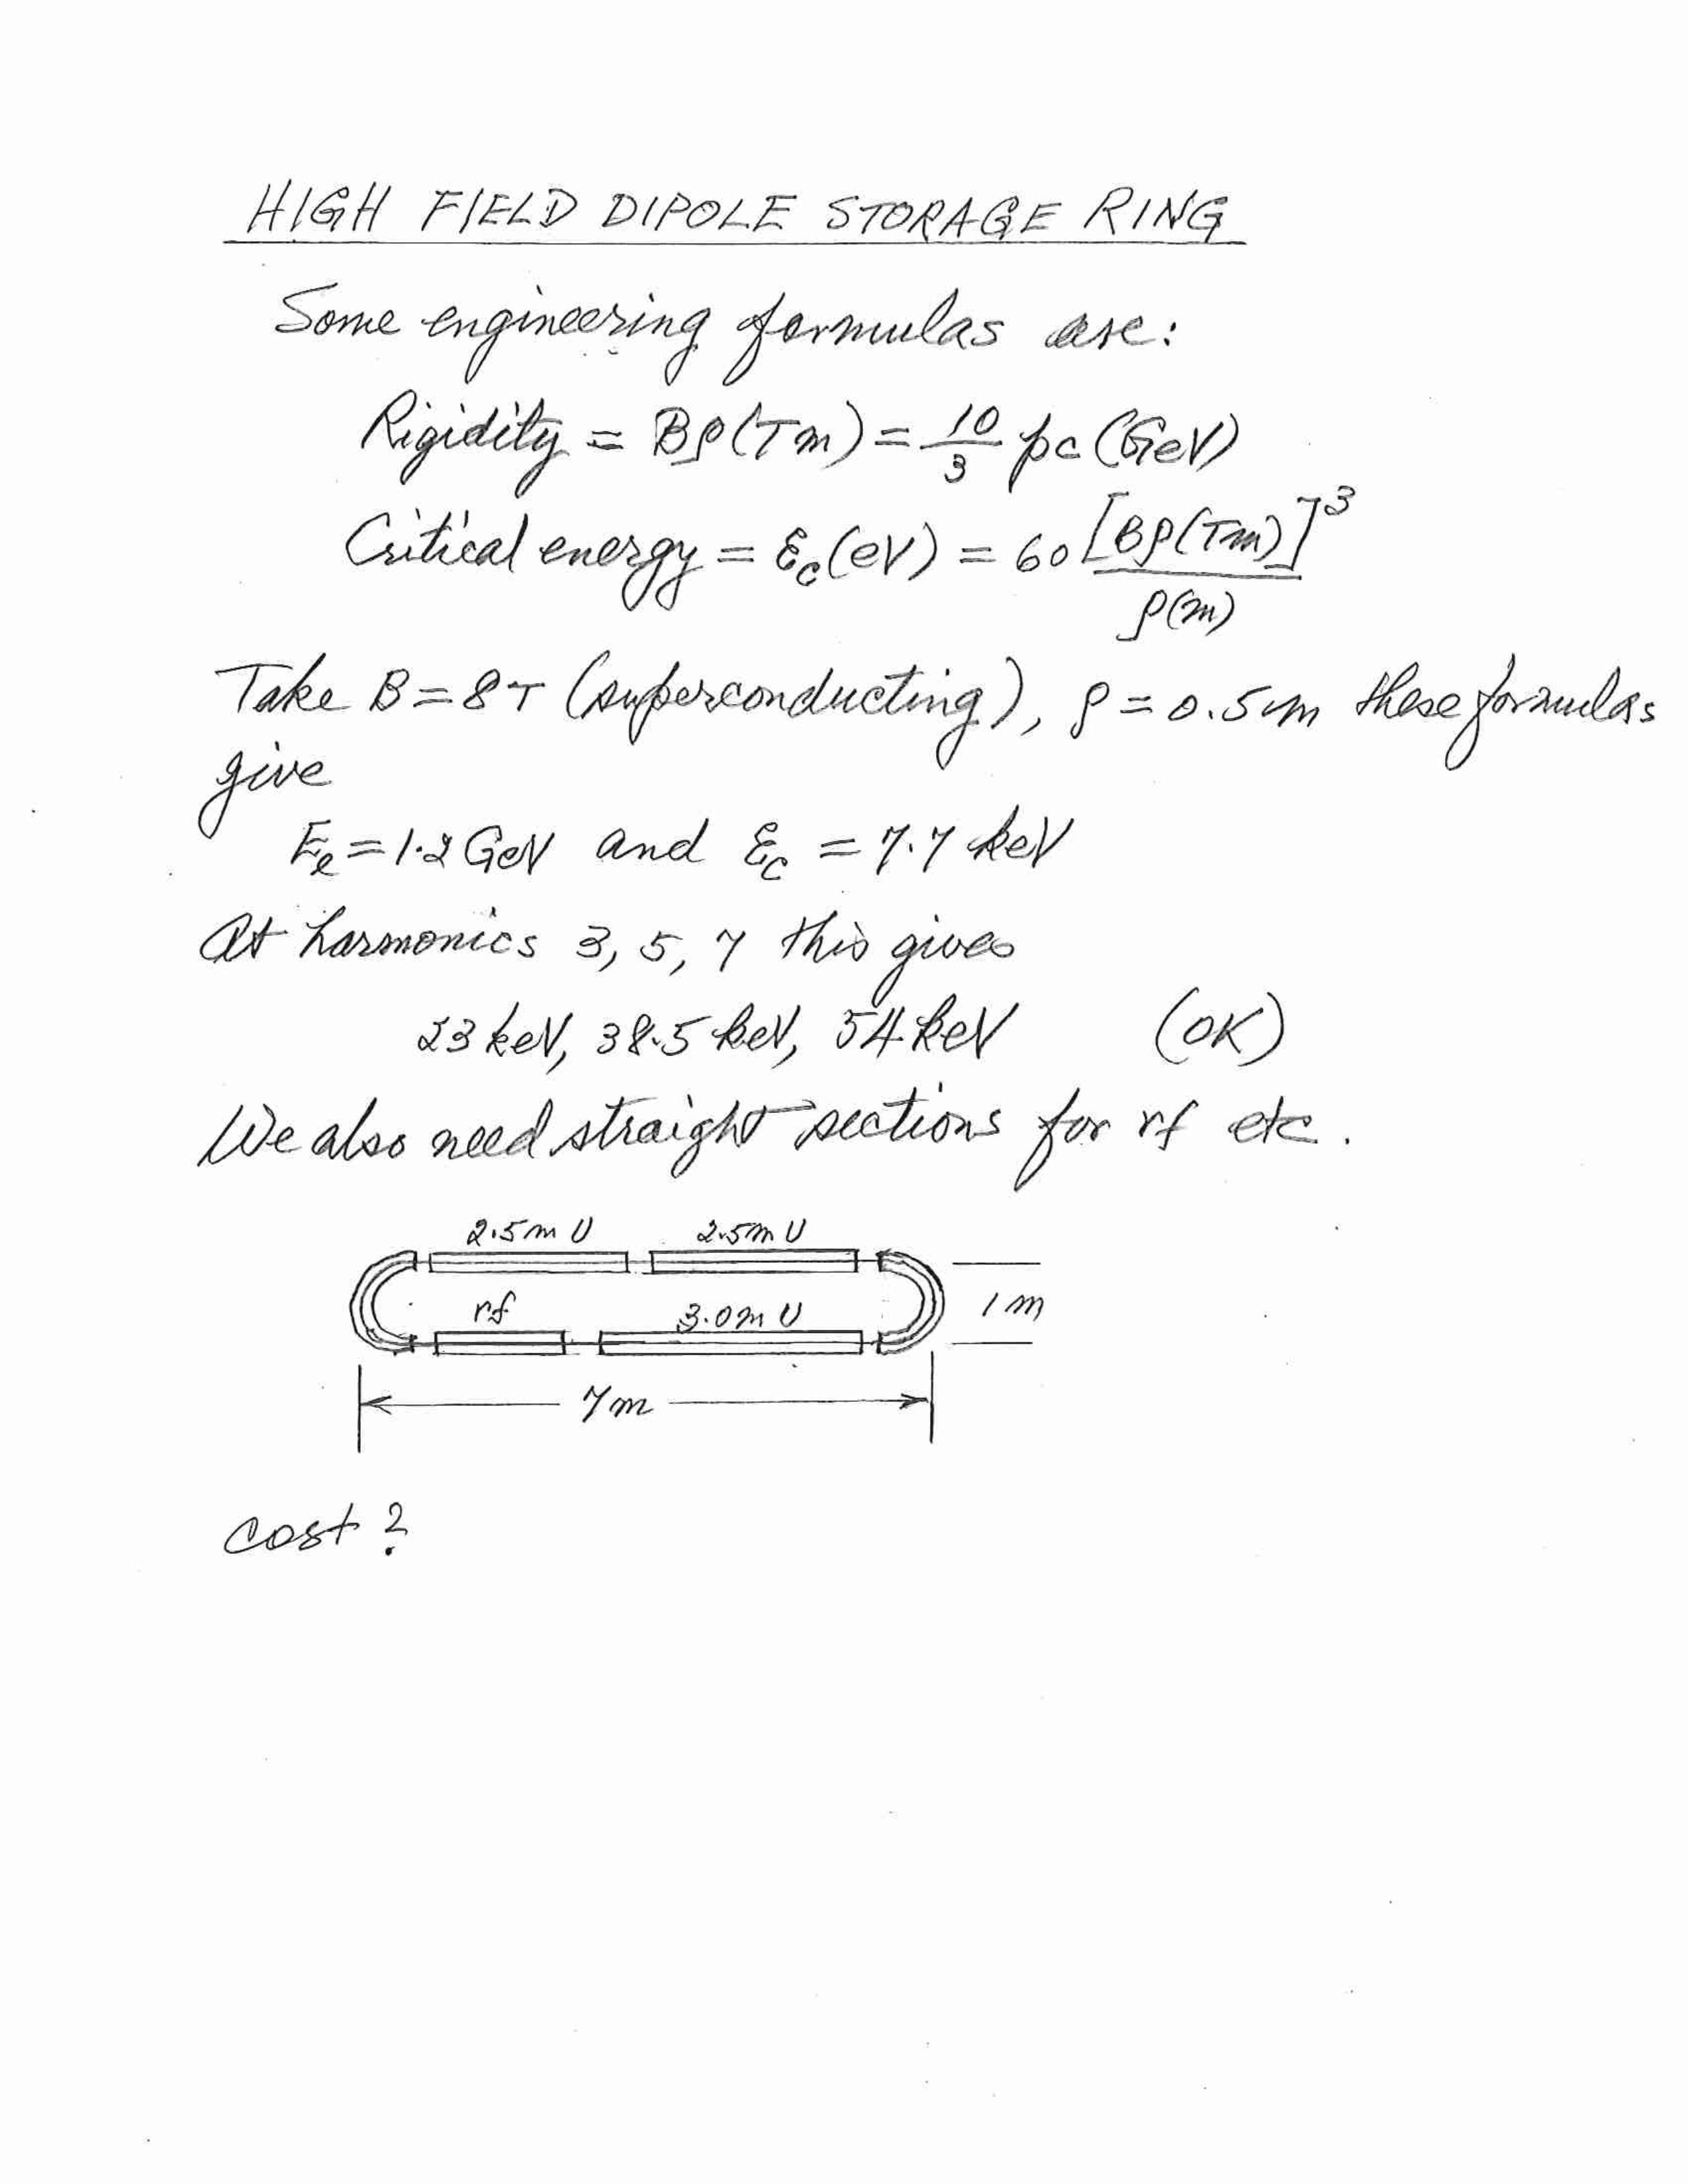 HIGH FIELD DIPOLE STORAGE RING
Some engineering formulas are:
Rigidity = Bρ(Tm) = 10/3 pc (GeV)
Critical energy = ℰc(eV) = 60 [Bρ(Tm)]³ / ρ(m)
Take B=8T (superconducting), ρ = 0.5m these formulas
give
Ee=1.2 GeV and ℰc = 7.7 keV
At harmonics 3, 5, 7 this gives
23 keV, 38.5 keV, 54 keV (OK)
We also need straight sections for rf etc.
2.5m U 2.5m U
rf 3.0m U 1 m
7m
cost?